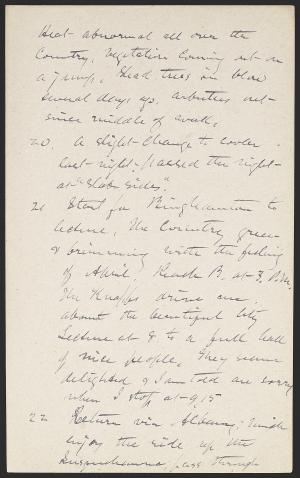 Heat abnormal all over the
Country, Vegetation Coming out on
a jump, Shad trees in bloom
several days ago, arbutus out
since middle of week.
20. A slight change to cooler
last night. Passed the night
at "Slab Sides".
21 Start for Binghamton to
lecture, The Country green
& brimming with the feeling
of April. Reach B. at 3. P.M.
The Knapps drive me
about the beautiful City
Lecture at 8 to a full hall
of nice people. They seem
delighted & I am told are sorry
when I stop at 9,15
22 Return via Albany; Much
enjoy the ride up the
Susquehanna, pass through